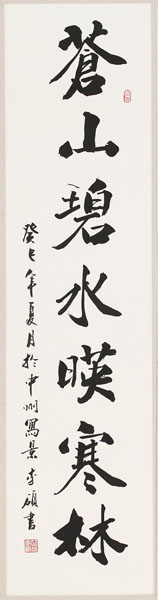 蒼山碧水暎寒林
癸巳年夏月於中州寫景李碩書